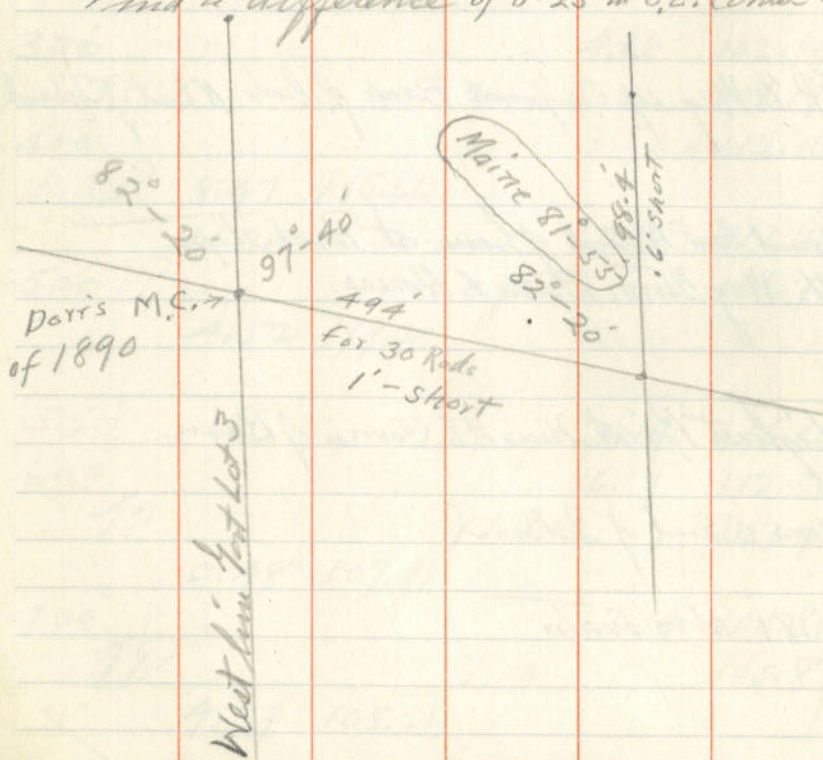 find a difference of 0-25 in S.E. Corner
82°-20'
97°-40'
Maine 81°-55'
98.4'
.6' short
82°-20'
Dorris M.C.→
of 1890
494'
for 30 Rods
1'-short
West line Govt Lot 3